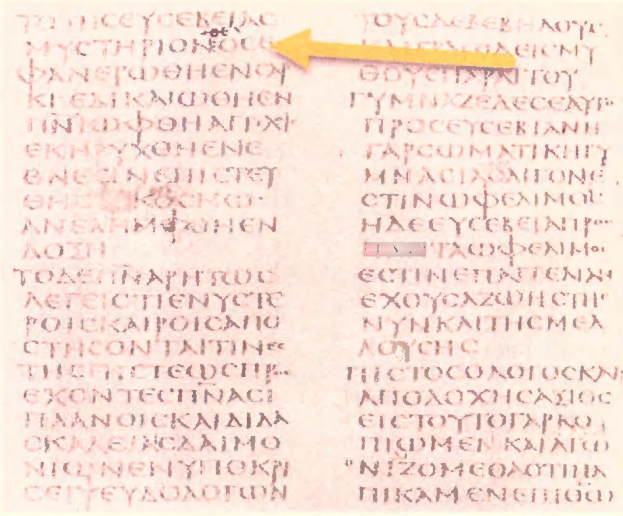 ΤΟΤΗϹΕΥϹΕΒΕΙΑϹ
ΜΥϹΤΗΡΙΟΝΟϹΕ
ΦΑΝΕΡΩΘΗΕΝϹΑΡ
ΚΙΕΔΙΚΑΙΩΘΗΕΝ
ΠΝΙΩΦΘΗΑΓΓΕΛΟΙϹ
ΕΚΗΡΥΧΘΗΕΝΕ
ΘΝΕϹΙΝΕΠΙϹΤΕΥ
ΘΗΕΝΚΟϹΜΩ
ΑΝΕΛΗΜΦΘΗΕΝ
ΔΟΞΗ
ΤΟΔΕΠΝΑΡΗΤΩϹ
ΛΕΓΕΙΟΤΙΕΝΥϹΤΕ
ΡΟΙϹΚΑΙΡΟΙϹΑΠΟ
ϹΤΗϹΟΝΤΑΙΤΙΝΕϹ
ΤΗϹΠΙϹΤΕΩϹΠΡΟϹ
ΕΧΟΝΤΕϹΠΝΑϹΙ
ΠΛΑΝΟΙϹΚΑΙΔΙΔΑ
ϹΚΑΛΕΙΑΙϹΔΑΙΜΟ
ΝΙΩΝΕΝΥΠΟΚΡΙ
ϹΕΙΨΕΥΔΟΛΟΓΩΝ
ΤΟΥϹΔΕΒΕΒΗΛΟΥϹ
ΚΑΙΓΡΑΩΔΕΙϹΜΥ
ΘΟΥϹΠΑΡΑΙΤΟΥ
ΓΥΜΝΑΖΕΔΕϹΕΑΥΤΟ
ΠΡΟϹΕΥϹΕΒΙΑΝΗ
ΓΑΡϹΩΜΑΤΙΚΗΓΥ
ΜΝΑϹΙΑΟΛΙΓΟΝΕ
ϹΤΙΝΩΦΕΛΙΜΟϹ
ΗΔΕΕΥϹΕΒΕΙΑΠΡΟϹ
ΤΑΩΦΕΛΙΜΟϹ
ΕϹΤΙΝΕΠΑΓΓΕΛΙΑ
ΕΧΟΥϹΑΖΩΗϹΤΗϹ
ΝΥΝΚΑΙΤΗϹΜΕΛ
ΛΟΥϹΗϹ
ΠΙϹΤΟϹΟΛΟΓΟϹΚΑΙ
ΑΠΟΔΟΧΗϹΑΞΙΟϹ
ΕΙϹΤΟΥΤΟΓΑΡΚΟ
ΠΙΩΜΕΝΚΑΙΑΓΩ
ΝΙΖΟΜΕΘΑΟΤΙΗΛ
ΠΙΚΑΜΕΝΕΠΙΘΩ